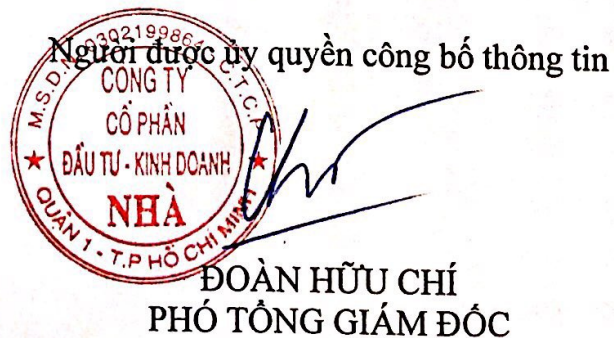 Người được ủy quyền công bố thông tin
M.S.D.N: 0302199864 - C.T.C.P
CÔNG TY
CỔ PHẦN
ĐẦU TƯ - KINH DOANH
NHÀ
QUẬN 1 - T.P HỒ CHÍ MINH
ĐOÀN HỮU CHÍ
PHÓ TỔNG GIÁM ĐỐC